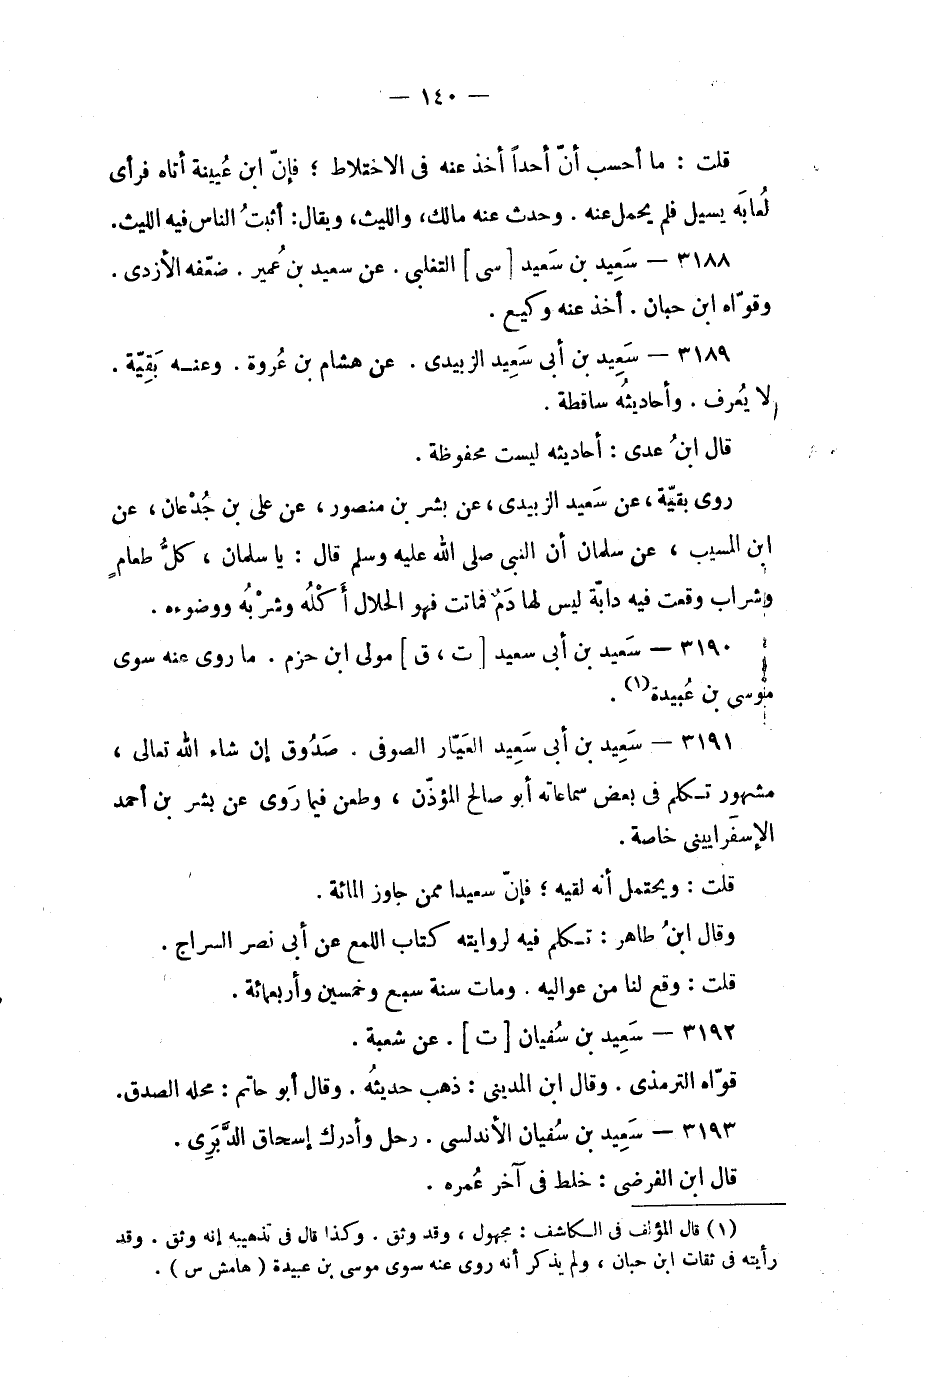 — ١٤٠ —
قلت : ما أحسب أنّ أحداً أخذ عنه فى الاختلاط ؛ فإنّ ابن عُيينة أتاه فرأى
لُعابَه يسيل فلم يحمل عنه . وحدث عنه مالك، والليث، ويقال: أثبتُ الناس فيه الليث.
٣١٨٨ — سَعِيد بن سَعيد [ سى ] التغلبى . عن سعيد بن عُمير . ضعّفه الأزدى .
وقوّاه ابن حبان . أخذ عنه وكيع .
٣١٨٩ — سَعِيد بن أبى سَعِيد الزبيدى . عن هشام بن عُروة . وعنه بَقِيّة .
لا يُعرف . وأحاديثُه ساقطة .
قال ابنُ عدى : أحاديثه ليست محفوظة .
روى بقيّة ، عن سَعيد الزبيدى ، عن بشر بن منصور ، عن على بن جُدْعان ، عن
ابن المسيب ، عن سلمان أن النبى صلى الله عليه وسلم قال : يا سلمان ، كلُّ طعامٍ
وشراب وقعت فيه دابّة ليس لها دَمٌ فماتت فهو الحلال أَكْلُه وشرْبُه ووضوءه .
٣١٩٠ — سَعيد بن أبى سعيد [ ت ، ق ] مولى ابن حزم . ما روى عنه سوى
موسى بن عُبيدة(١) .
٣١٩١ — سَعِيد بن أبى سَعِيد العَيّار الصوفى . صَدُوق إن شاء الله تعالى ،
مشهور تكلم فى بعض سماعاته أبو صالح المؤذّن ، وطعن فيما رَوى عن بشر بن أحمد
الإسفَرايينى خاصة .
قلت : ويحتمل أنه لقيه ؛ فإنّ سعيدا ممن جاوز المائة .
وقال ابنُ طاهر : تكلم فيه لروايته كتاب اللمع عن أبى نصر السراج .
قلت : وقع لنا من عواليه . ومات سنة سبع وخمسين وأربعمائة .
٣١٩٢ — سَعِيد بن سُفيان [ ت ] . عن شعبة .
قوّاه الترمذى . وقال ابن المدينى : ذهب حديثُه . وقال أبو حاتم : محله الصدق.
٣١٩٣ — سَعِيد بن سُفيان الأندلسى . رحل وأدرك إسحاق الدَّبَرِى .
قال ابن الفرضى : خلط فى آخر عُمره .
(١) قال المؤلف فى الكاشف : مجهول ، وقد وثق . وكذا قال فى تذهيبه إنه وثق . وقد
رأيته فى ثقات ابن حبان ، ولم يذكر أنه روى عنه سوى موسى بن عبيدة ( هامش س ) .